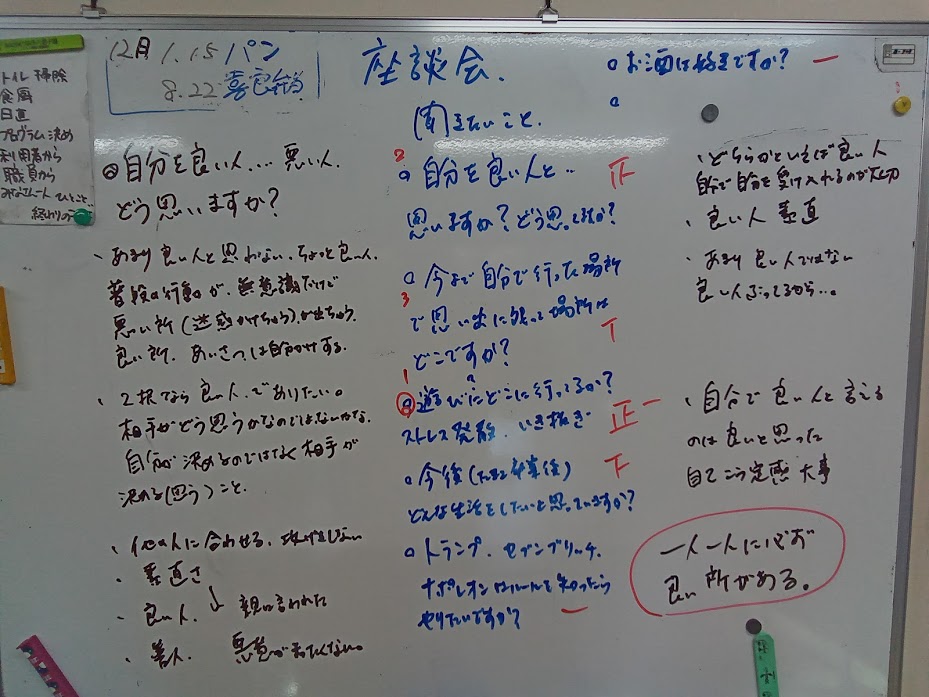 トイレ掃除
食器
日直
プログラム決め
利用者から
職員から
みなさん一人ひとこと
終わりの
12月 1.15 パン
8.22 喜宮弁当
座談会.
聞きたいこと.
◎自分を良い人... 悪い人.
どう思いますか?
、あまり良い人と思わない、ちょっと良い人.
普段の行動が、無意識だけど
悪い所(迷惑かけちゃう)が出ちゃう.
良い所、あいさつは自分からする.
、2択なら良い人でありたい。
相手がどう思うかなのではないかな.
自分が決めるのではなく相手が
決める(思う)こと.
、他の人に合わせる、しない
・素直さ
・良い人. 親に言われた
・善人. 悪意がまったくない。
2
○自分を良い人と..
正
思いますか?どう思ってるか?
○今まで自分で行った場所
3
で思い出に残って場所は
どこですか?
T
1
◎遊びにどこに行ってるか?
ストレス発散.いき抜き
正一
○今後(卒業後)
下
どんな生活をしたいと思っていますか?
○トランプ.セブンブリッヂ.
ナポレオン ルールを知ったら
やりたいですか?
一
○お酒は好きですか? 一
○
、どちらかといえば良い人
自分で自分を受け入れるのが大切
、良い人 素直
、あまり良い人ではない
良い人ぶってるから...。
、自分で良い人と言える
のは良いと思った
自こう定感 大事
一人一人に必ず
良い所がある。